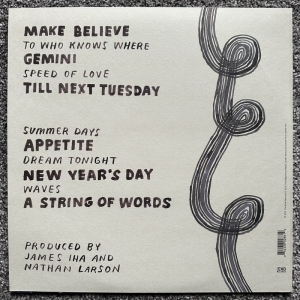 MAKE BELIEVE
TO WHO KNOWS WHERE
GEMINI
SPEED OF LOVE
TILL NEXT TUESDAY
SUMMER DAYS
APPETITE
DREAM TONIGHT
NEW YEAR'S DAY
WAVES
A STRING OF WORDS
PRODUCED BY
JAMES IHA AND
NATHAN LARSON